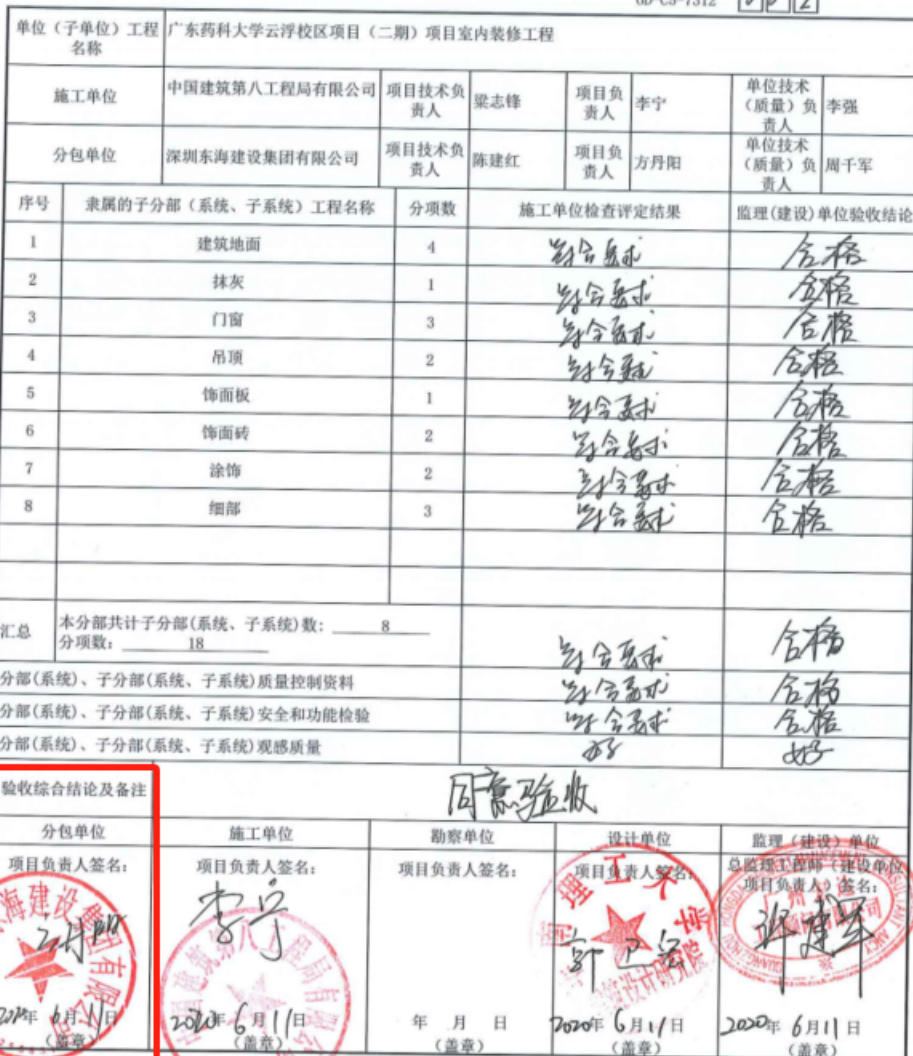 GD-C5-7312
单位（子单位）工程名称 广东药科大学云浮校区项目（二期）项目室内装修工程
施工单位 中国建筑第八工程局有限公司 项目技术负责人 梁志锋 项目负责人 李宁 单位技术（质量）负责人 李强
分包单位 深圳东海建设集团有限公司 项目技术负责人 陈建红 项目负责人 方丹阳 单位技术（质量）负责人 周千军
序号 隶属的子分部（系统、子系统）工程名称 分项数 施工单位检查评定结果 监理(建设)单位验收结论
1 建筑地面 4 符合要求 合格
2 抹灰 1 符合要求 合格
3 门窗 3 符合要求 合格
4 吊顶 2 符合要求 合格
5 饰面板 1 符合要求 合格
6 饰面砖 2 符合要求 合格
7 涂饰 2 符合要求 合格
8 细部 3 符合要求 合格
汇总 本分部共计子分部(系统、子系统)数： 8
分项数： 18 符合要求 合格
分部(系统)、子分部(系统、子系统)质量控制资料 符合要求 合格
分部(系统)、子分部(系统、子系统)安全和功能检验 符合要求 合格
分部(系统)、子分部(系统、子系统)观感质量 好 好
验收综合结论及备注 同意验收
分包单位 施工单位 勘察单位 设计单位 监理（建设）单位
项目负责人签名： 项目负责人签名： 项目负责人签名： 项目负责人签名： 总监理工程师（建设单位项目负责人）签名：
海建设集团有限公司 方丹阳 李宁 建筑第八工程局有限公 理工大学 设计研究院
2020年 6月11日 2020年 6月11日 年 月 日 2020年 6月11日 2020年 6月11日
（盖章） （盖章） （盖章） （盖章） （盖章）